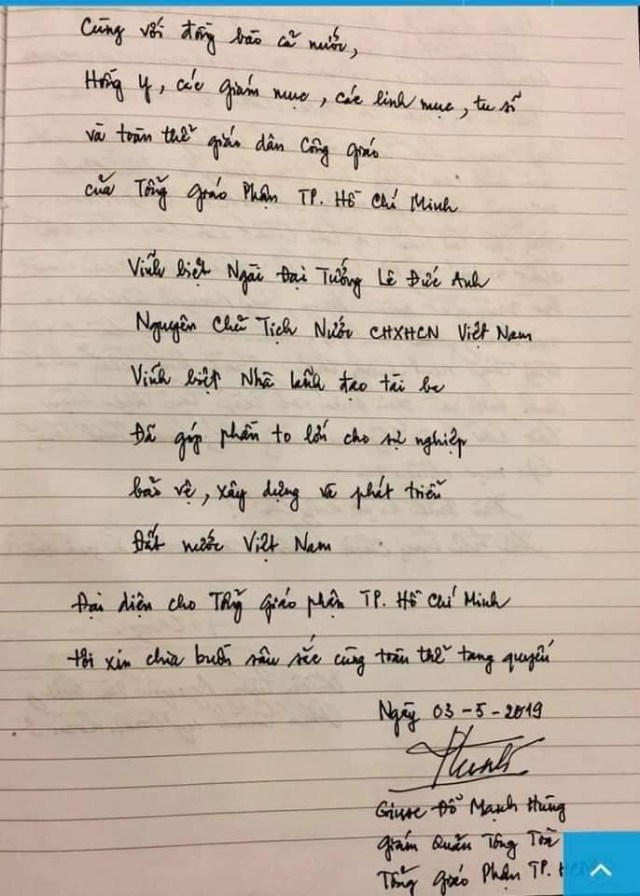 Cùng với đồng bào cả nước,
Hồng Y, các giám mục, các linh mục, tu sĩ
và toàn thể giáo dân Công giáo
của Tổng Giáo Phận TP. Hồ Chí Minh
Vĩnh biệt Ngài Đại Tướng Lê Đức Anh
Nguyên Chủ Tịch Nước CHXHCN Việt Nam
Vĩnh biệt Nhà lãnh đạo tài ba
Đã góp phần to lớn cho sự nghiệp
bảo vệ, xây dựng và phát triển
Đất nước Việt Nam
Đại diện cho Tổng Giáo phận TP. Hồ Chí Minh
tôi xin chia buồn sâu sắc cùng toàn thể tang quyến
Ngày 03-5-2019
Giuse Đỗ Mạnh Hùng
Giám Quản Tông Toà
Tổng Giáo Phận TP. HCM